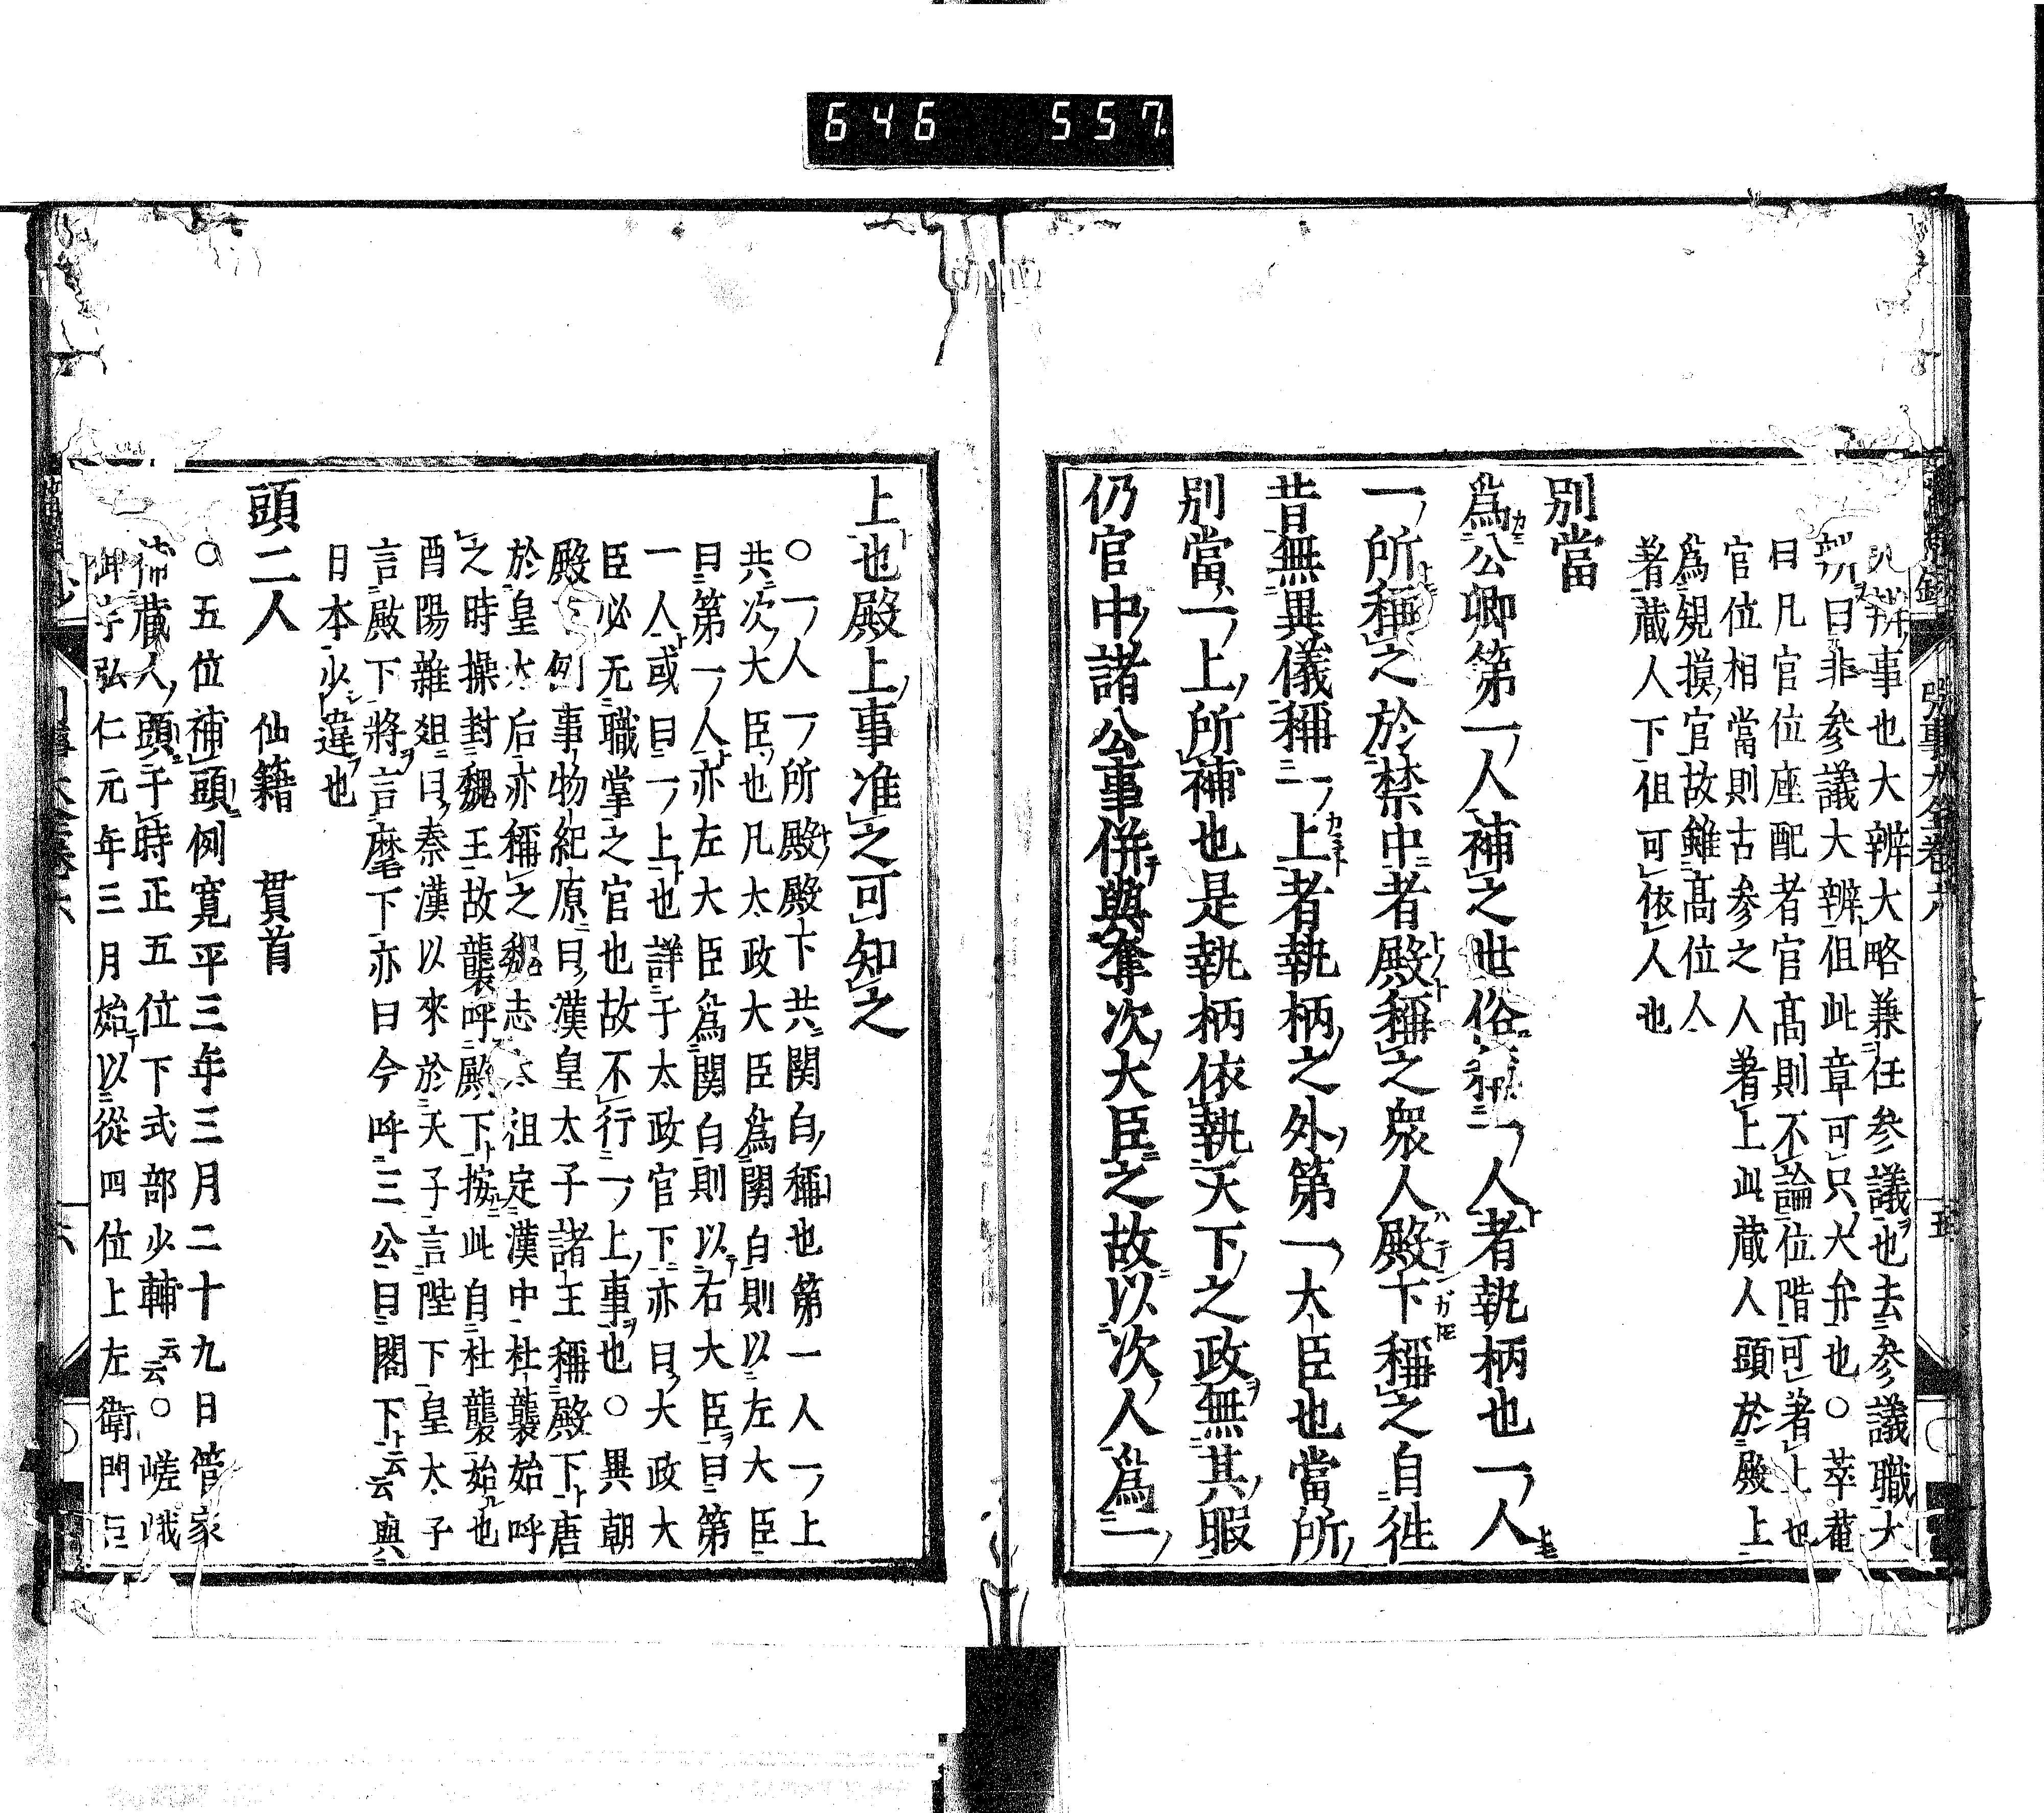 646 557
事也大辨大略兼任参議也去参議職大
曰非参議大辨但此章可只大弁也○萃菴
曰凡官位座配者官髙則不論位階可著上也
官位相當則古参之人著上此蔵人頭於殿上
爲規摸官故雖髙位人
著蔵人下但可依人也
別當
爲公卿第一人補之世俗稱一人者執柄也一人
一所稱之於禁中者殿稱之衆人殿下稱之自徃
昔無異儀稱一上者執柄之外第一大臣也當所
別當一上所補也是執柄依執天下之政無其暇
仍官中諸公事併與奪次大臣之故以次人爲一
上也殿上事准之可知之
○一人一所殿殿下共関白稱也第一人一上
共次大臣也凡太政大臣爲関白則以左大臣
曰第一人亦左大臣爲関白則以右大臣曰第
一人或曰一上也詳于太政官下亦曰大政大
臣必无職掌之官也故不行一上事也○異朝
殿下例事物紀原曰漢皇太子諸王稱殿下唐
於皇太后亦稱之魏志太祖定漢中杜襲始呼
之時操封魏王故襲呼殿下按此自杜襲始也
酉陽雜爼曰秦漢以來於天子言陛下皇太子
言殿下將言麾下亦曰今呼三公曰閣下云云與
日本少違也
頭二人 仙籍 貫首
○五位補頭例寛平三年三月二十九日管家
補蔵人頭于時正五位下式部少輔云云○嵯峨
御宇弘仁元年三月始以從四位上左衛門